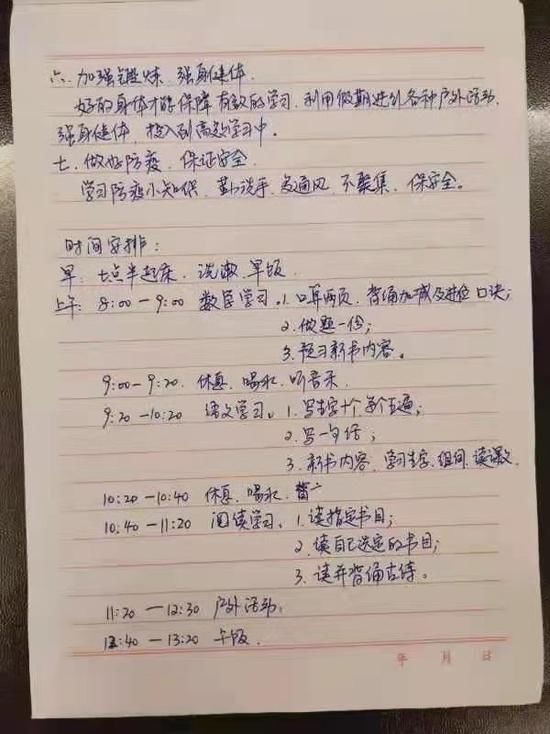 六、加强锻炼、强身健体.
好的身体才能保障有效的学习.利用假期进行各种户外活动.
强身健体,投入到高效学习中.
七、做好防疫、保证安全.
学习防疫小知识、勤洗手、多通风、不聚集、保安全。
时间安排：
早：七点半起床、洗漱、早饭.
上午：8:00—9:00 数学学习。1.口算两页、背诵加减及进位口诀；
2.做题一份；
3.预习新书内容。
9:00—9:20、休息、喝水、听音乐.
9:20—10:20 语文学习。1.写生字十个每个五遍；
2.写一句话；
3.新书内容、学习生字.组词.读课文
10:20—10:40 休息、喝水、
10:40—11:20 阅读学习。1.读指定书目；
2.读自己选定的书目；
3.读并背诵古诗。
11:20—12:30 户外活动.
12:40—13:20 午饭.
年 月 日